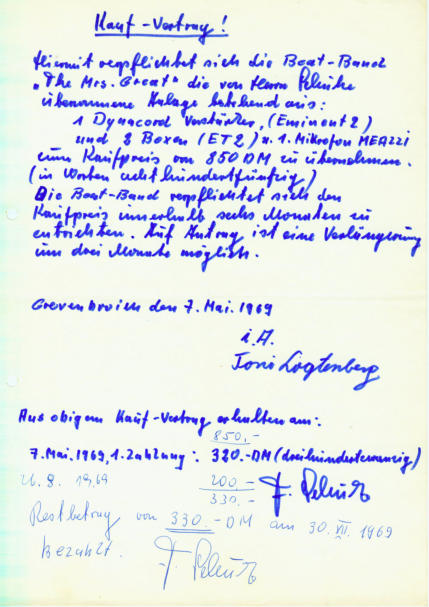 Kauf-Vertrag!
Hiermit verpflichtet sich die Beat-Band
"The Mrs. Great" die von Herrn
übernommene Anlage bestehend aus:
1 Dynacord Verstärker, (Eminent 2)
und 2 Boxen (ET2) u. 1. Mikrofon MEAZZI
zum Kaufpreis von 850 DM zu übernehmen.
(in Worten achthundertfünfzig)
Die Beat-Band verpflichtet sich den
Kaufpreis innerhalb sechs Monaten zu
entrichten. Auf Antrag ist eine Verlängerung
um drei Monate möglich.
Grevenbroich den 7. Mai. 1969
i.A.
Toni Logtenberg
Aus obigem Kauf-Vertrag erhalten am:
850,-
7. Mai. 1969, 1. Zahlung: 320.-DM (dreihundertzwanzig)
26.8. 1969 200,-
330.-
Restbetrag von 330.-DM am 30. VII. 1969
Bezahlt.